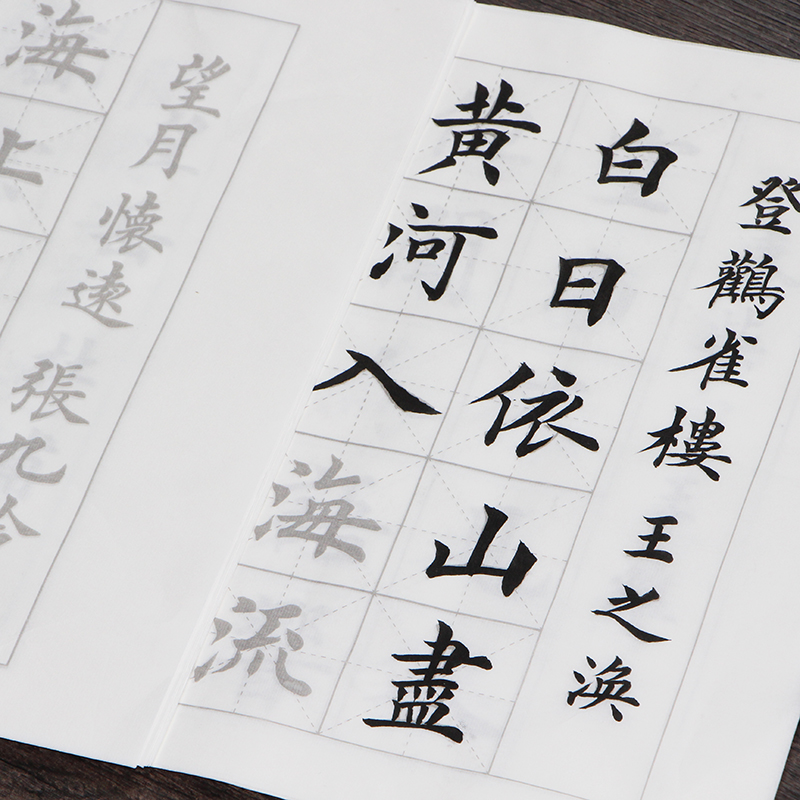 登鸛雀樓 王之渙
白日依山盡
黃河入海流
望月懷遠 張九齡
海上